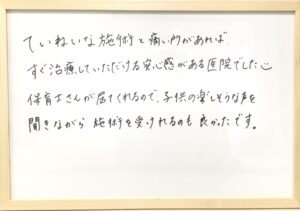 ていねいな施術と痛い所があれば、
すぐ治療していただける安心感がある医院でした☺
保育士さんが居てくれるので、子供の楽しそうな声を
聞きながら 施術を受けれるのも 良かったです。